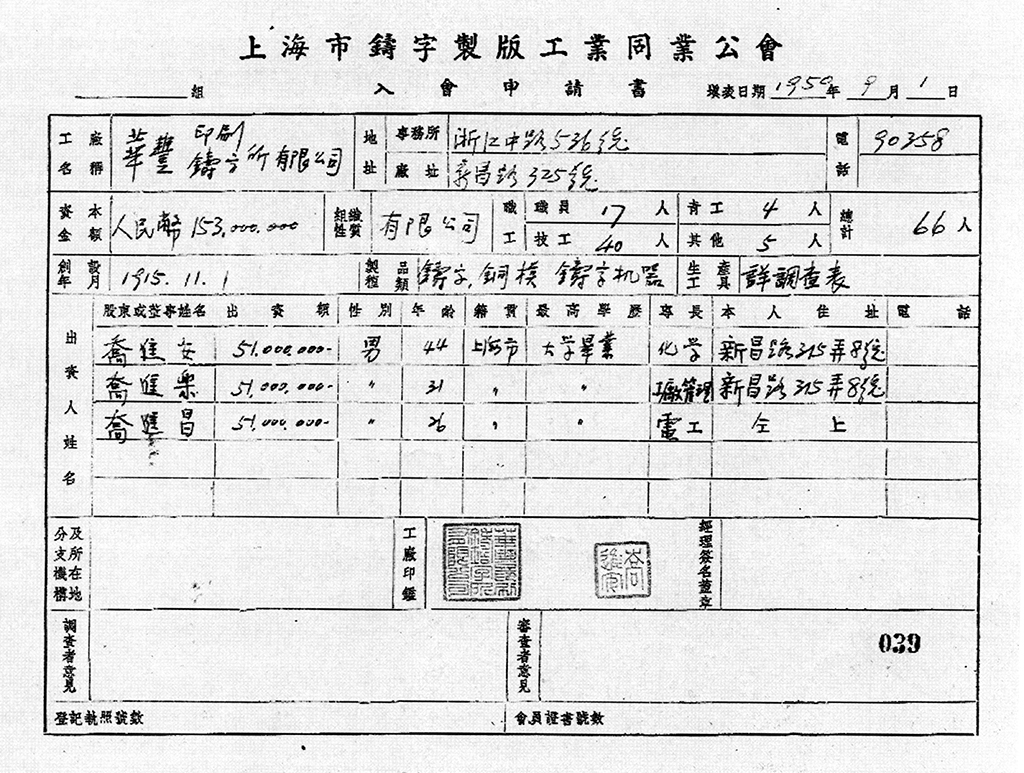 上海市鑄字製版工業同業公會
組 入會申請書 填表日期 1950年 9月 1日
工廠名稱 華豐印刷鑄字所有限公司 地址 事務所 浙江中路536號 電話 90358
廠址 新昌路325號
資本金額 人民幣 153,000,000 組織性質 有限公司 職工 職員 17人 青工 4人 總計 66人
技工 40人 其他 5人
創設年月 1915.11.1 製品種類 鑄字,銅模 鑄字机器 生產工具 詳調查表
出資人姓名
股東或董事姓名 出資額 性別 年齡 籍貫 最高學歷 專長 本人住址 電話
喬進安 51,000,000- 男 44 上海市 大学畢業 化学 新昌路315弄8號
喬進樂 51,000,000- 〃 31 〃 〃 工廠管理 新昌路315弄8號
喬進昌 51,000,000- 〃 26 〃 〃 電工 仝上
分支機構及所在地 工廠印鑑 經理簽名蓋章
調查者意見 審查者意見 039
登記執照號數 會員證書號數